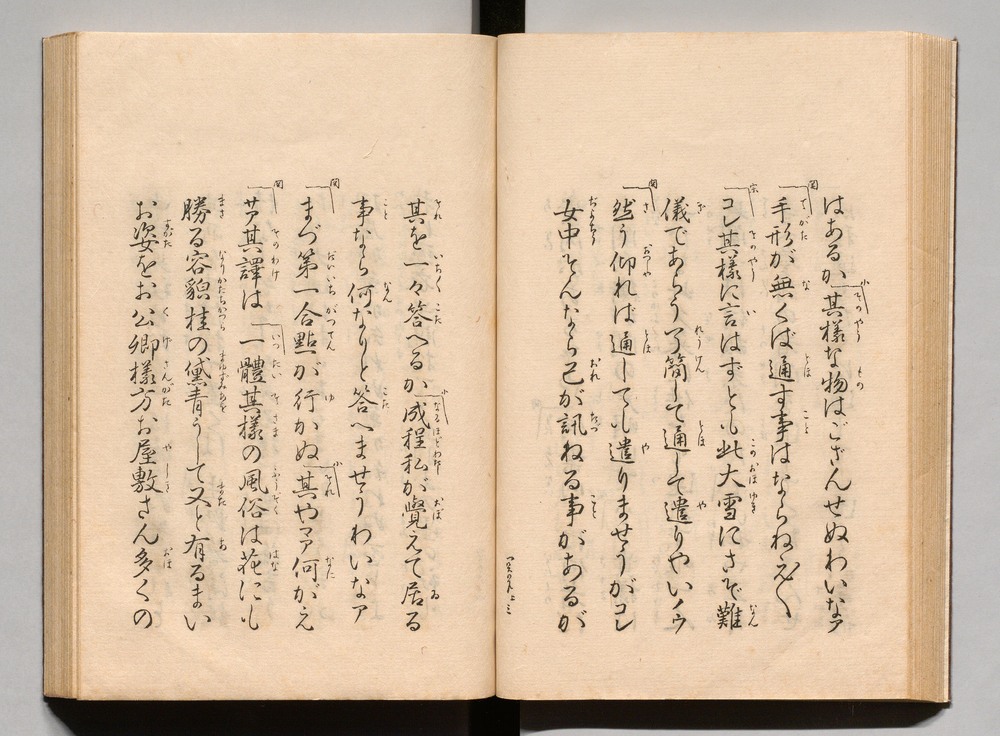 はあるか 小其様な物はござんせぬわいなア
関手形が無くば通す事はならねえ〳〵
宗コレ其様に言はずとも此大雪にさぞ難
儀であらう了簡して通して遣りやいノウ
関然う仰れば通しても遣りませうがコレ
女中そんなら己が訊ねる事があるが
其を一々答へるか 小成程私が覚えて居る
事なら何なりと答へませうわいなア
関まづ第一合點が行かぬ 小其やア何がえ
関サア其譯は 一體其様の風俗は花にも
勝る容貌桂の黛青うして又と有るまい
お姿をお公卿様方お屋敷さん多くの